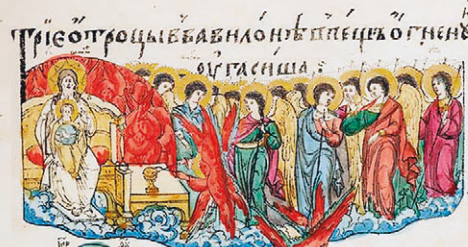 Трїе отроцы в вавилонѣ в пещъ огнену
ѹгасиша